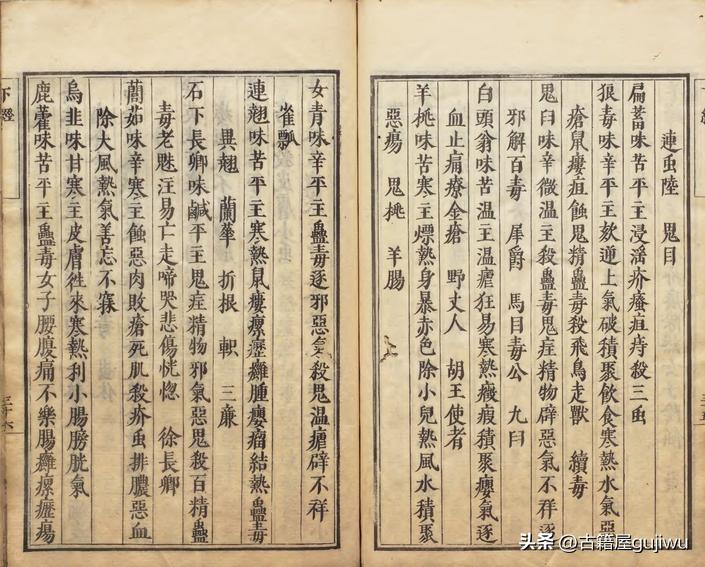 連虫陸 鬼目
扁蓄味苦平主浸淫疥瘙疽痔殺三虫
狼毒味辛平主欬逆上氣破積聚飲食寒熱水氣惡
瘡鼠瘻疽蝕鬼精蠱毒殺飛鳥走獸 續毒
鬼臼味辛微溫主殺蠱毒鬼疰精物辟惡氣不祥逐
邪解百毒 犀爵 馬目毒公 九臼
白頭翁味苦溫主溫瘧狂易寒熱癥瘕積聚癭氣逐
血止痛療金瘡 野丈人 胡王使者
羊桃味苦寒主熛熱身暴赤色除小兒熱風水積聚
惡瘍 鬼桃 羊腸
女青味辛平主蠱毒逐邪惡氣殺鬼溫瘧辟不祥
雀瓢
連翹味苦平主寒熱鼠瘻瘰癧癰腫癭瘤結熱蠱毒
異翹 蘭華 折根 軹 三廉
石下長卿味鹹平主鬼疰精物邪氣惡鬼殺百精蠱
毒老魅汪易亡走啼哭悲傷恍惚 徐長卿
藺茹味辛寒主蝕惡肉敗瘡死肌殺疥虫排膿惡血
除大風熱氣善忘不寐
烏韭味甘寒主皮膚徃來寒熱利小腸膀胱氣
鹿藿味苦平主蠱毒女子腰腹痛不樂腸癰瘰癧瘍
下經
头条 @古籍屋gujiwu